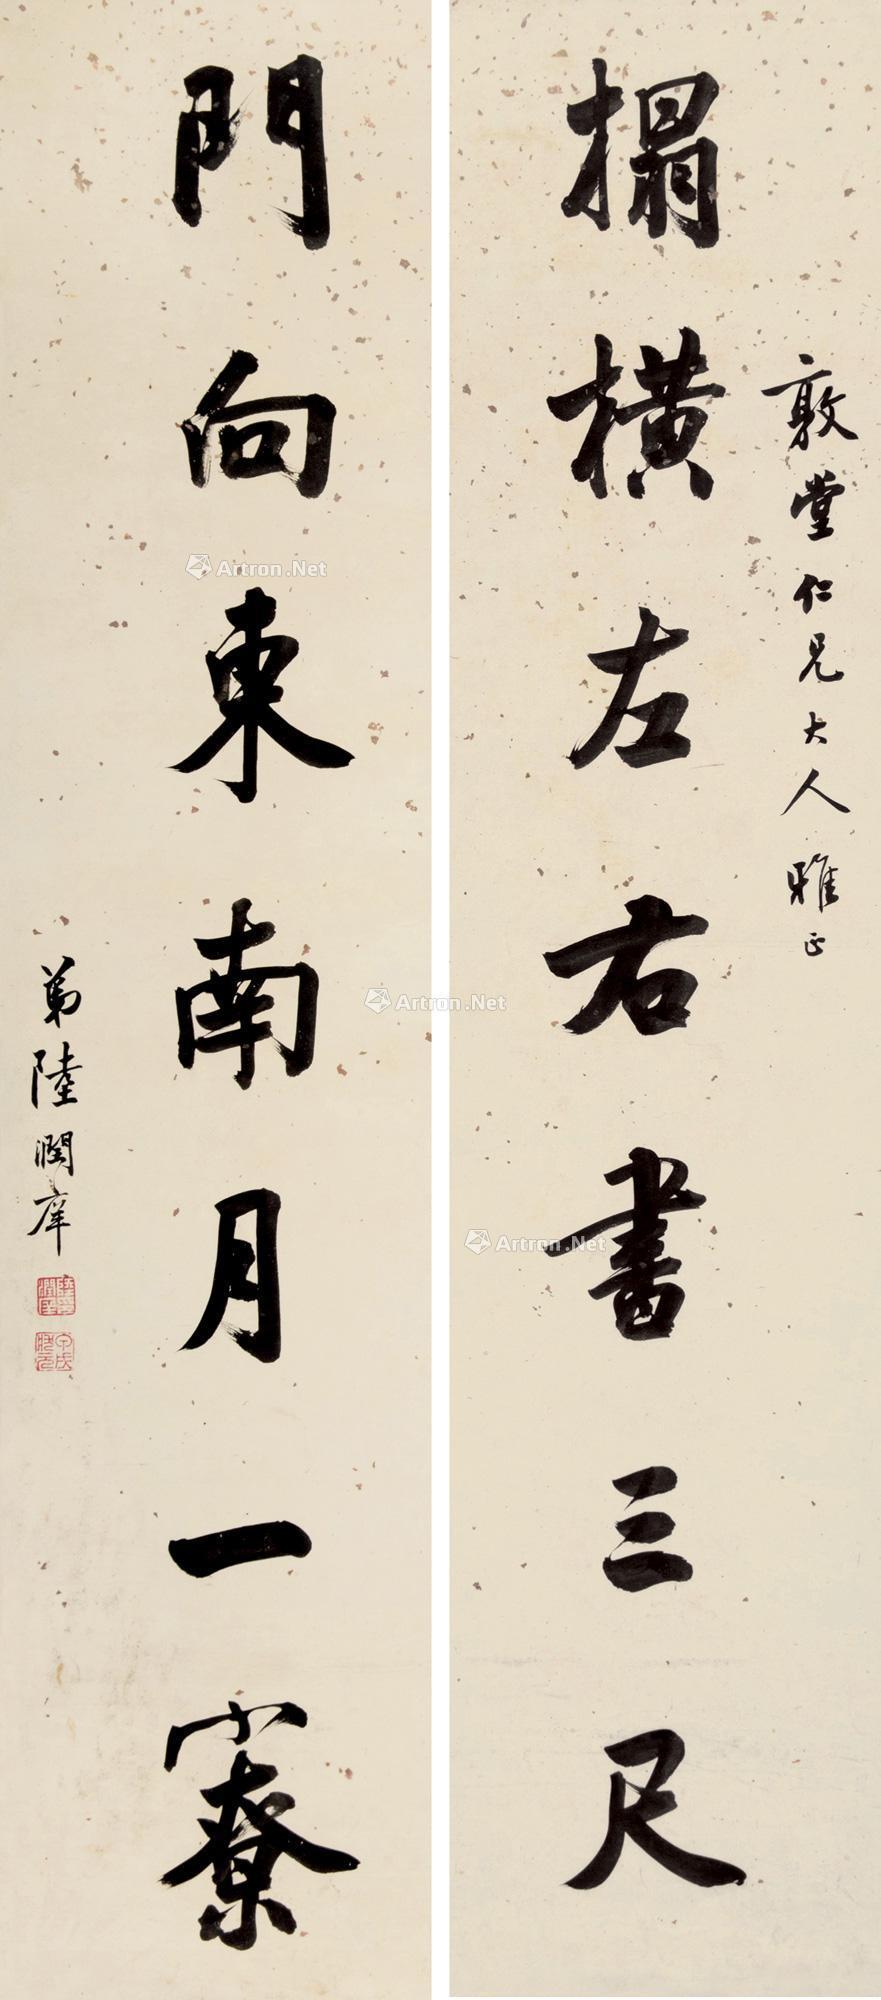 敦堂仁兄大人雅正
榻橫左右書三尺
門向東南月一寮
弟陸潤庠
Artron.Net
Artron.Net
Artron.Net